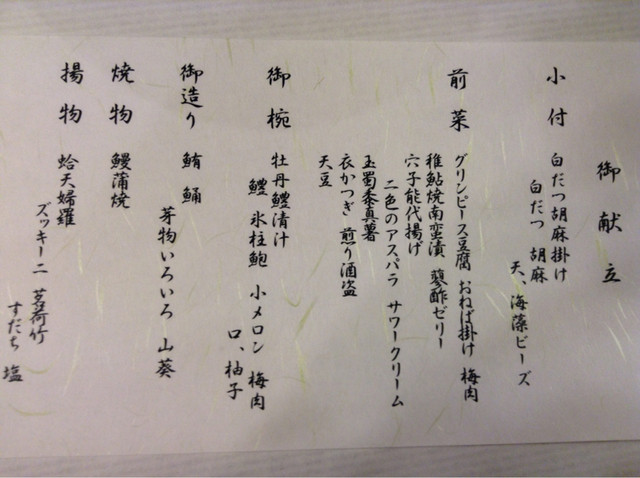 御献立
小付 白だつ胡麻掛け
白だつ 胡麻
天、海藻ビーズ
前菜 グリンピース豆腐 おねば掛け 梅肉
稚鮎焼南蛮漬 蓼酢ゼリー
穴子能代揚げ
二色のアスパラ サワークリーム
玉蜀黍真薯
衣かつぎ 煎り酒盗
天豆
御椀 牡丹鱧清汁
鱧 氷柱鮑 小メロン 梅肉
口、柚子
御造り 鮪 鯒
芽物いろいろ 山葵
焼物 鰻蒲焼
揚物 蛤天婦羅
ズッキーニ 茗荷竹
すだち 塩